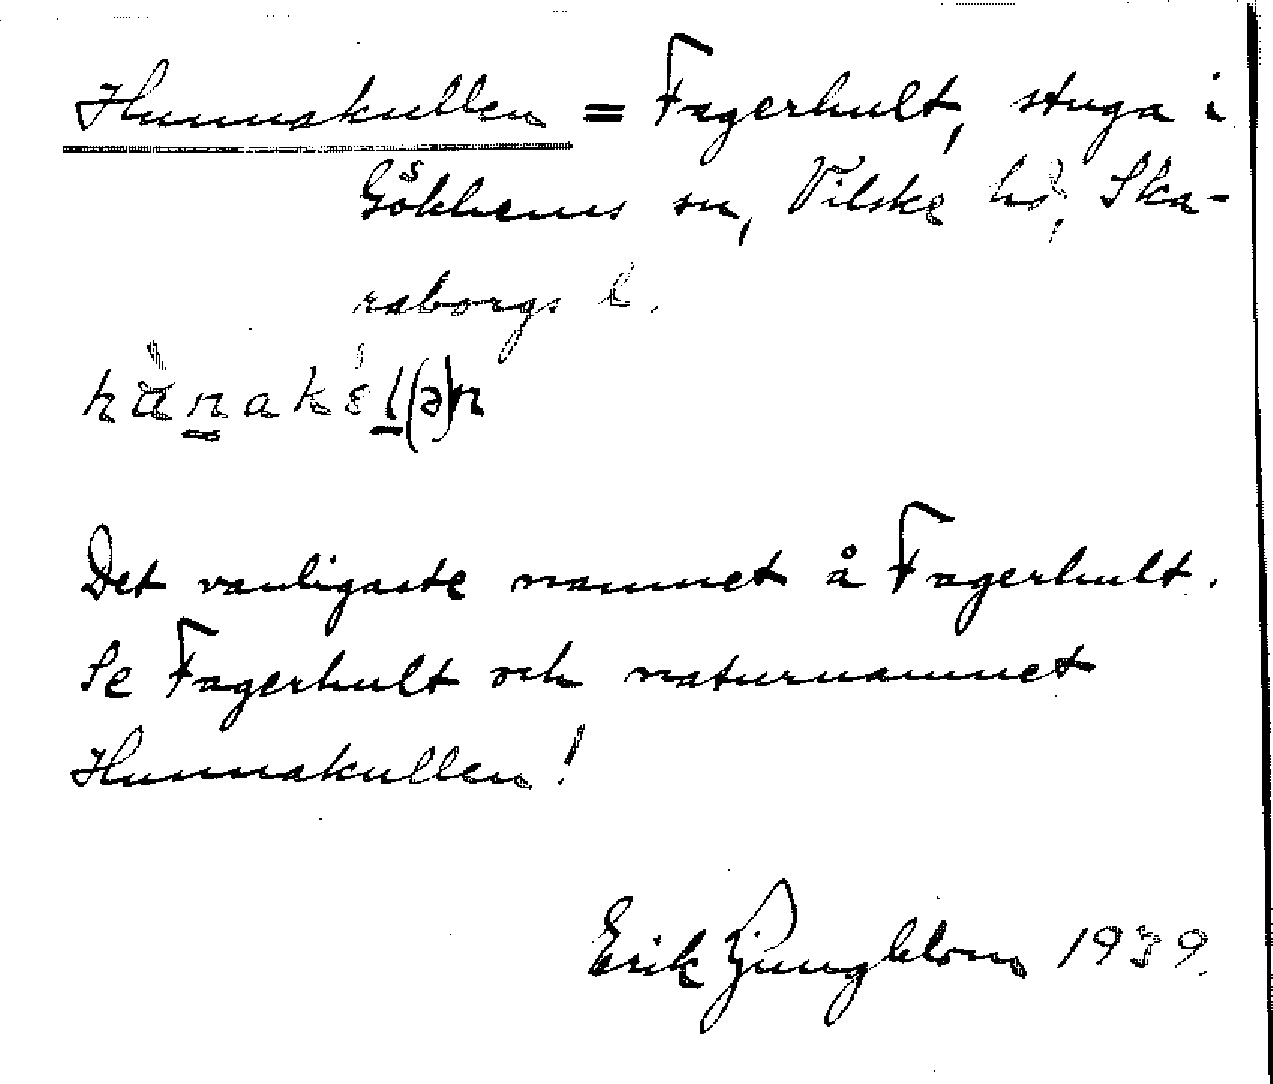 Hunnakullen = Fagerhult, stuga i
Gökhems sn, Vilske hd, Ska-
raborgs l.
Det vanligaste namnet å Fagerhult.
Se Fagerhult och naturnamnet
Hunnakullen!
Erik 1939.